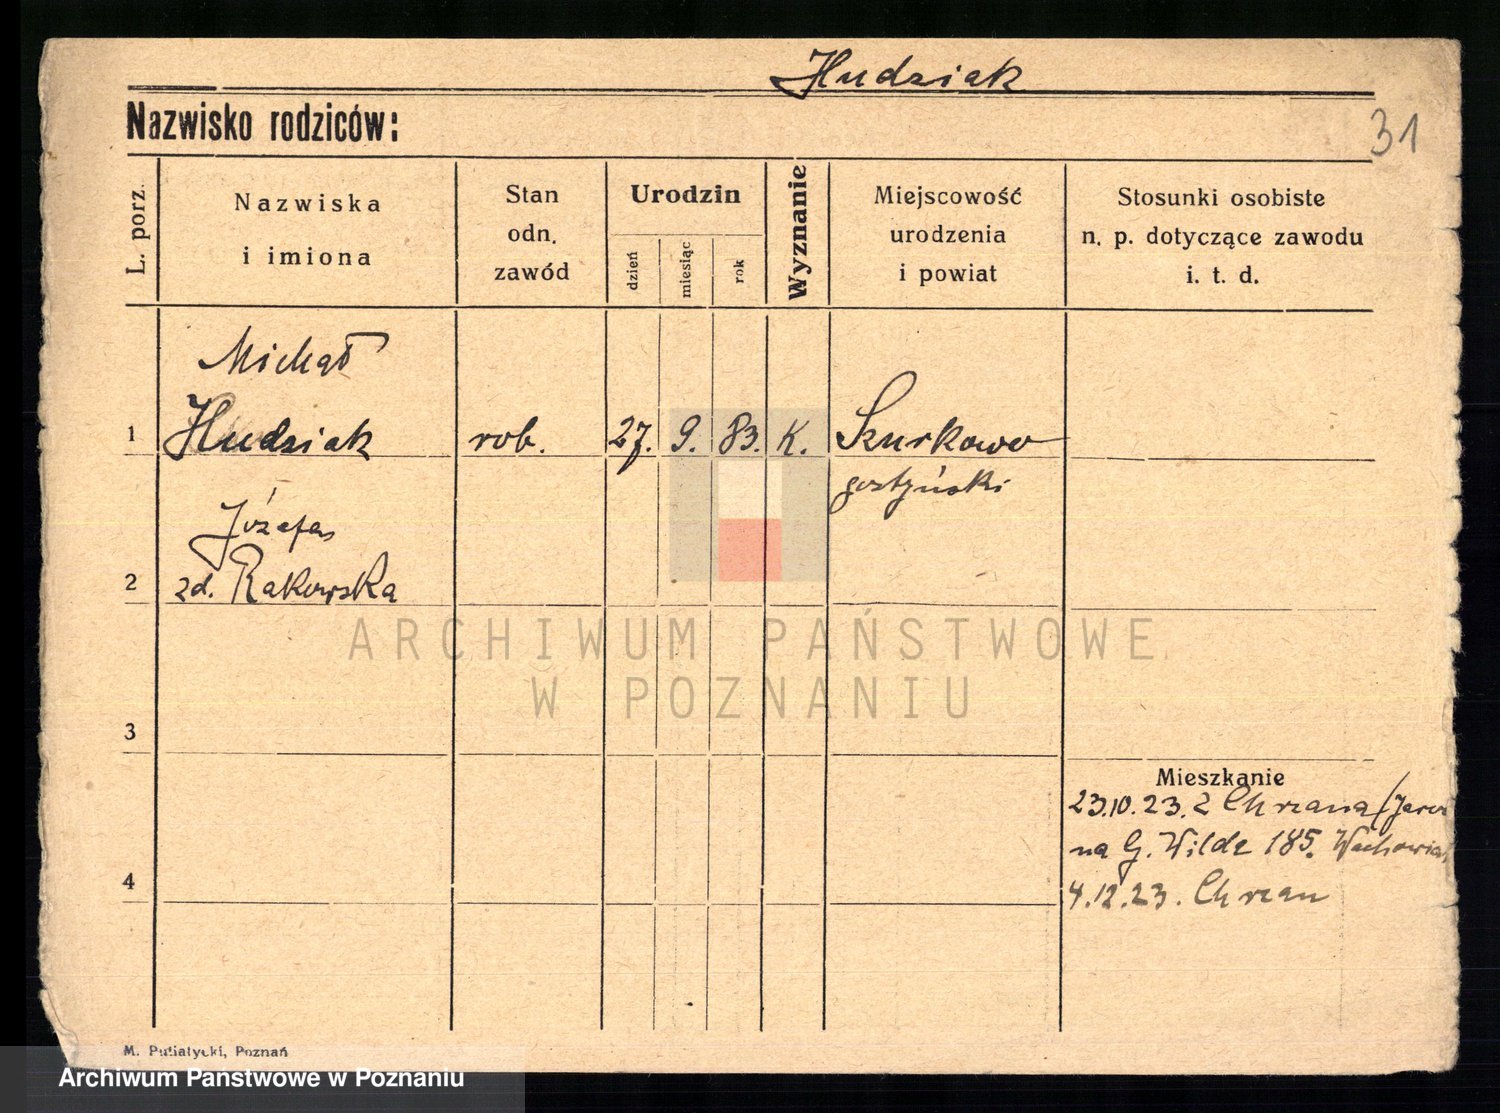 Hudziak
Nazwisko rodziców:
31
L. porz.
Nazwiska
i imiona
Stan
odn.
zawód
Urodzin
dzień
miesiąc
rok
Wyznanie
Miejscowość
urodzenia
i powiat
Stosunki osobiste
n. p. dotyczące zawodu
i. t. d.
Michał
1 Hudziak rob. 27. 9. 83. K. Szurkowo
gostyński
Józefa
2 zd. Rakowska
ARCHIWUM PAŃSTWOWE
W POZNANIU
3
Mieszkanie
23.10.23. z Chrzana/Jaro
na G. Wilde 185. Wachowiak
4
4.12.23. Chrzan
M. Putiatycki, Poznań
Archiwum Państwowe w Poznaniu